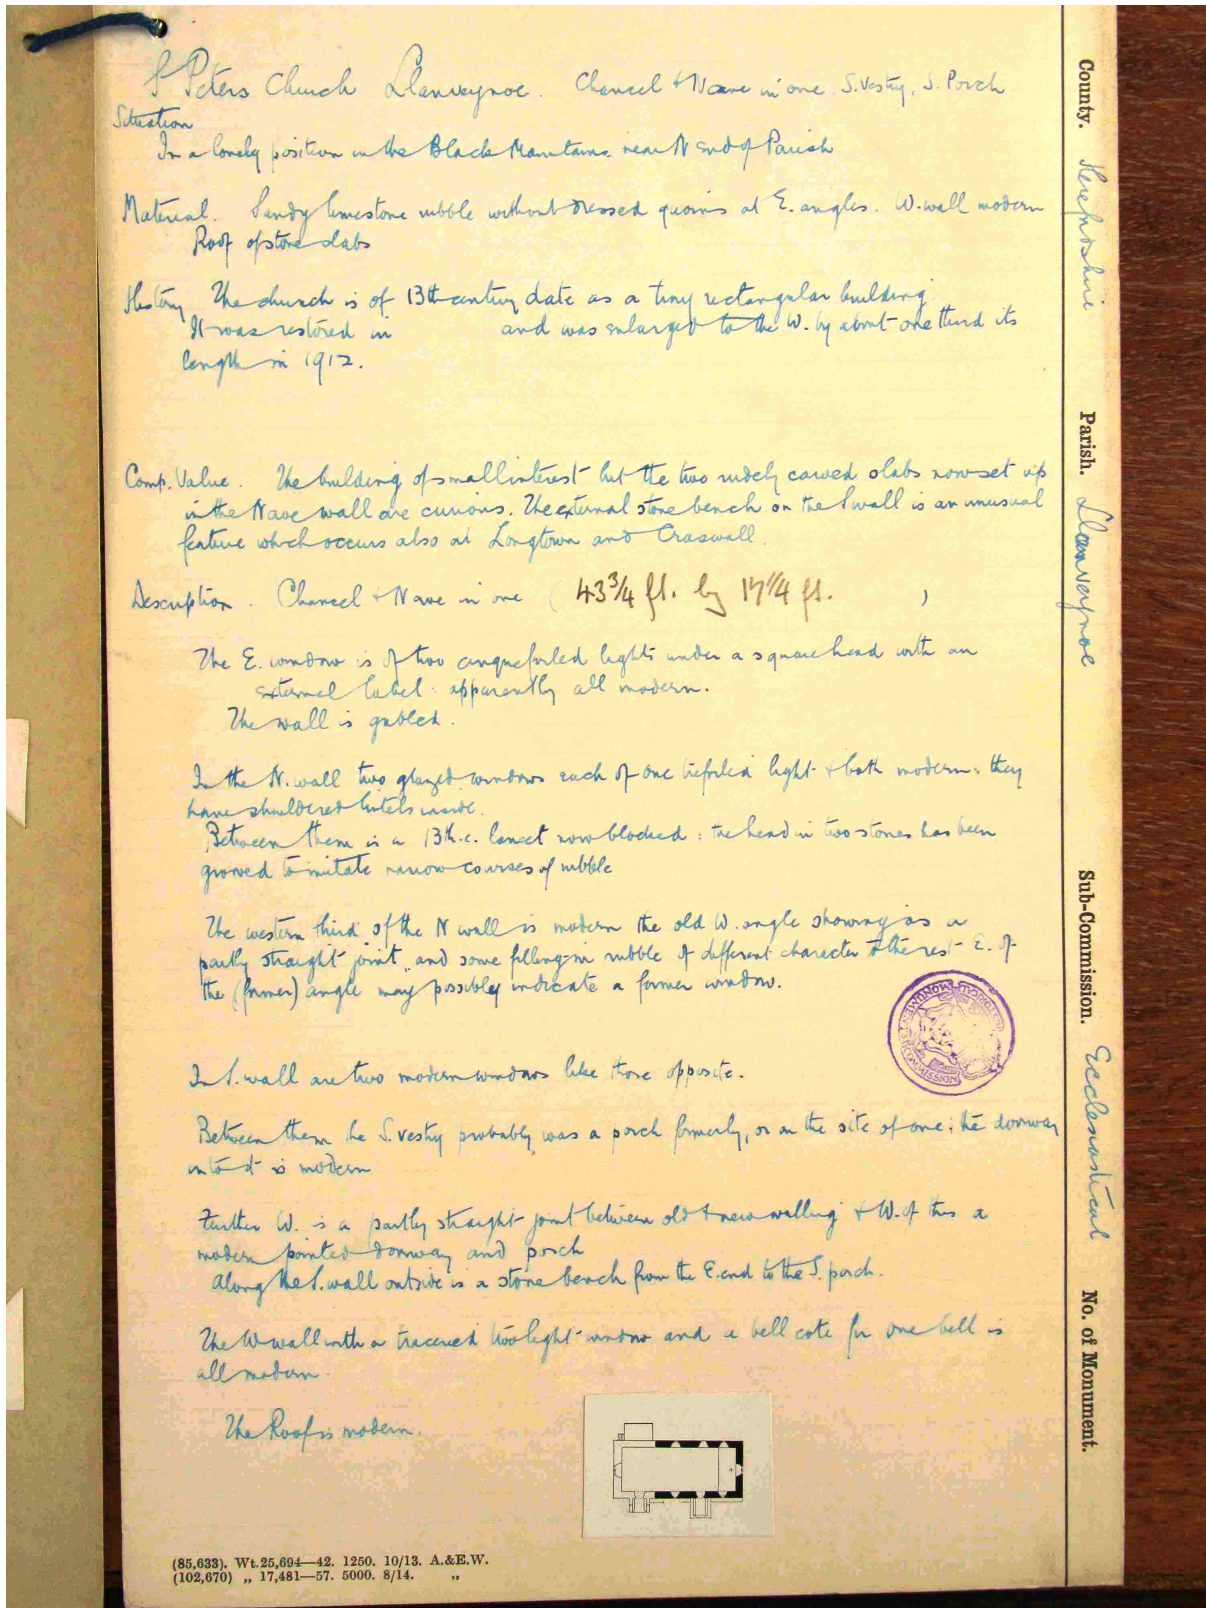 S Peters Church Llanveynoe. Chancel & Nave in one, S. Vestry, S. Porch
Situation
In a lonely position in the Black Mountains near N end of Parish
Material. Sandy limestone rubble without dressed quoins at E. angles. W. wall modern
Roof of stone slabs
History The church is of 13th century date as a tiny rectangular building.
It was restored in and was enlarged to the W. by about one third its
length in 1912.
Comp. Value. The building of small interest but the two rudely carved slabs now set up
in the Nave wall are curious. The external stone bench on the S wall is an unusual
feature which occurs also at Longtown and Craswall.
Description. Chancel & Nave in one ( 43 3/4 ft. by 17 1/4 ft. )
The E. window is of two cinquefoiled lights under a square head with an
external label: apparently all modern.
The wall is gabled.
In the N. wall two glazed windows each of one trefoiled light & both modern: they
have shouldered lintels inside.
Between them is a 13th. c. lancet now blocked: the head in two stones has been
grooved to imitate narrow courses of rubble
The western third of the N wall is modern the old W. angle showing as a
partly straight joint, and some filling-in rubble of different character to the rest E. of
the (former) angle may possibly indicate a former window.
In S. wall are two modern windows like those opposite.
Between them the S. vestry probably was a porch formerly, or on the site of one; the doorway
into it is modern
Further W. is a partly straight joint between old & new walling & W. of this a
modern pointed doorway and porch
Along the S. wall outside is a stone bench from the E. end to the S. porch.
The W wall with a traceried two light window and a bell cote for one bell is
all modern.
The Roof is modern.
(85,633). Wt.25,694—42. 1250. 10/13. A.&E.W.
(102,670) „ 17,481—57. 5000. 8/14. „
County. Herefordshire
Parish. Llanveynoe
Sub-Commission. Ecclesiastical
No. of Monument.
HISTORICAL MONUMENTS COMMISSION